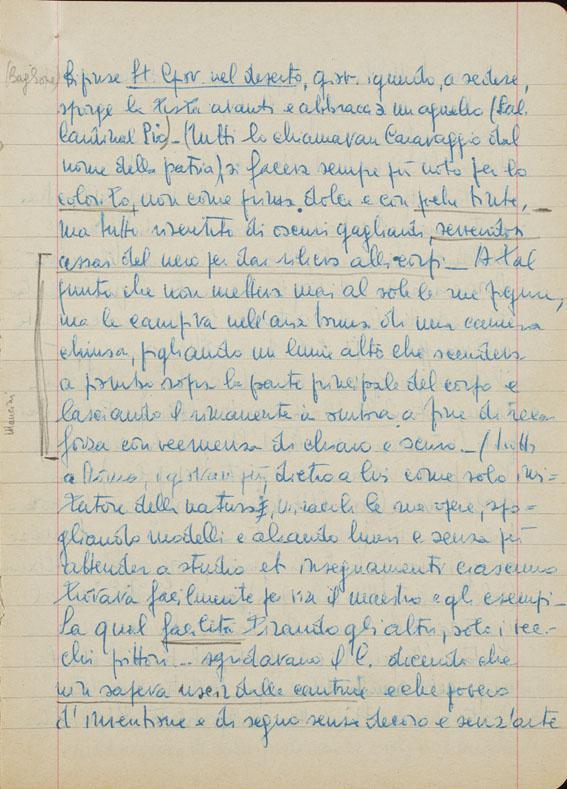 (Baglione) Dipinse St. Giov. nel deserto, giov. ignudo, a sedere,
sporge la testa avanti e abbraccia un agnello (Gal.
Cardinal Pio) – (Tutti lo chiamavan Caravaggio dal
nome della patria) si faceva sempre più noto per lo
colorito, non come prima dolce e con poche tinte,
ma tutto risentito di oscuri gagliardi, servendosi
assai del nero per dar rilievo alli corpi – A tal
punto che non metteva mai al sole le sue figure,
ma le campiva nell'aria bruna di una camera
chiusa, pigliando un lume alto che scendeva
a piombo sopra la parte principale del corpo e
lasciando il rimanente in ombra a fine di recar
Mancini
forza con veemenza di chiaro e scuro. – (Tutti
a Roma, i giovani più, dietro a lui come solo imi-
tatore della natura, miracoli le sue opere, spo-
gliando modelli e alzando lumi e senza più
attendere a studio et insegnamenti ciascuno
trovava facilmente per via il maestro e gli esempi –
La qual facilità tirando gli altri, solo i vec-
chi pittori ... sgridavano il C. dicendo che
non sapeva uscir dalle cantine e che povero
d'inventione e di segno senza decoro e senz'arte